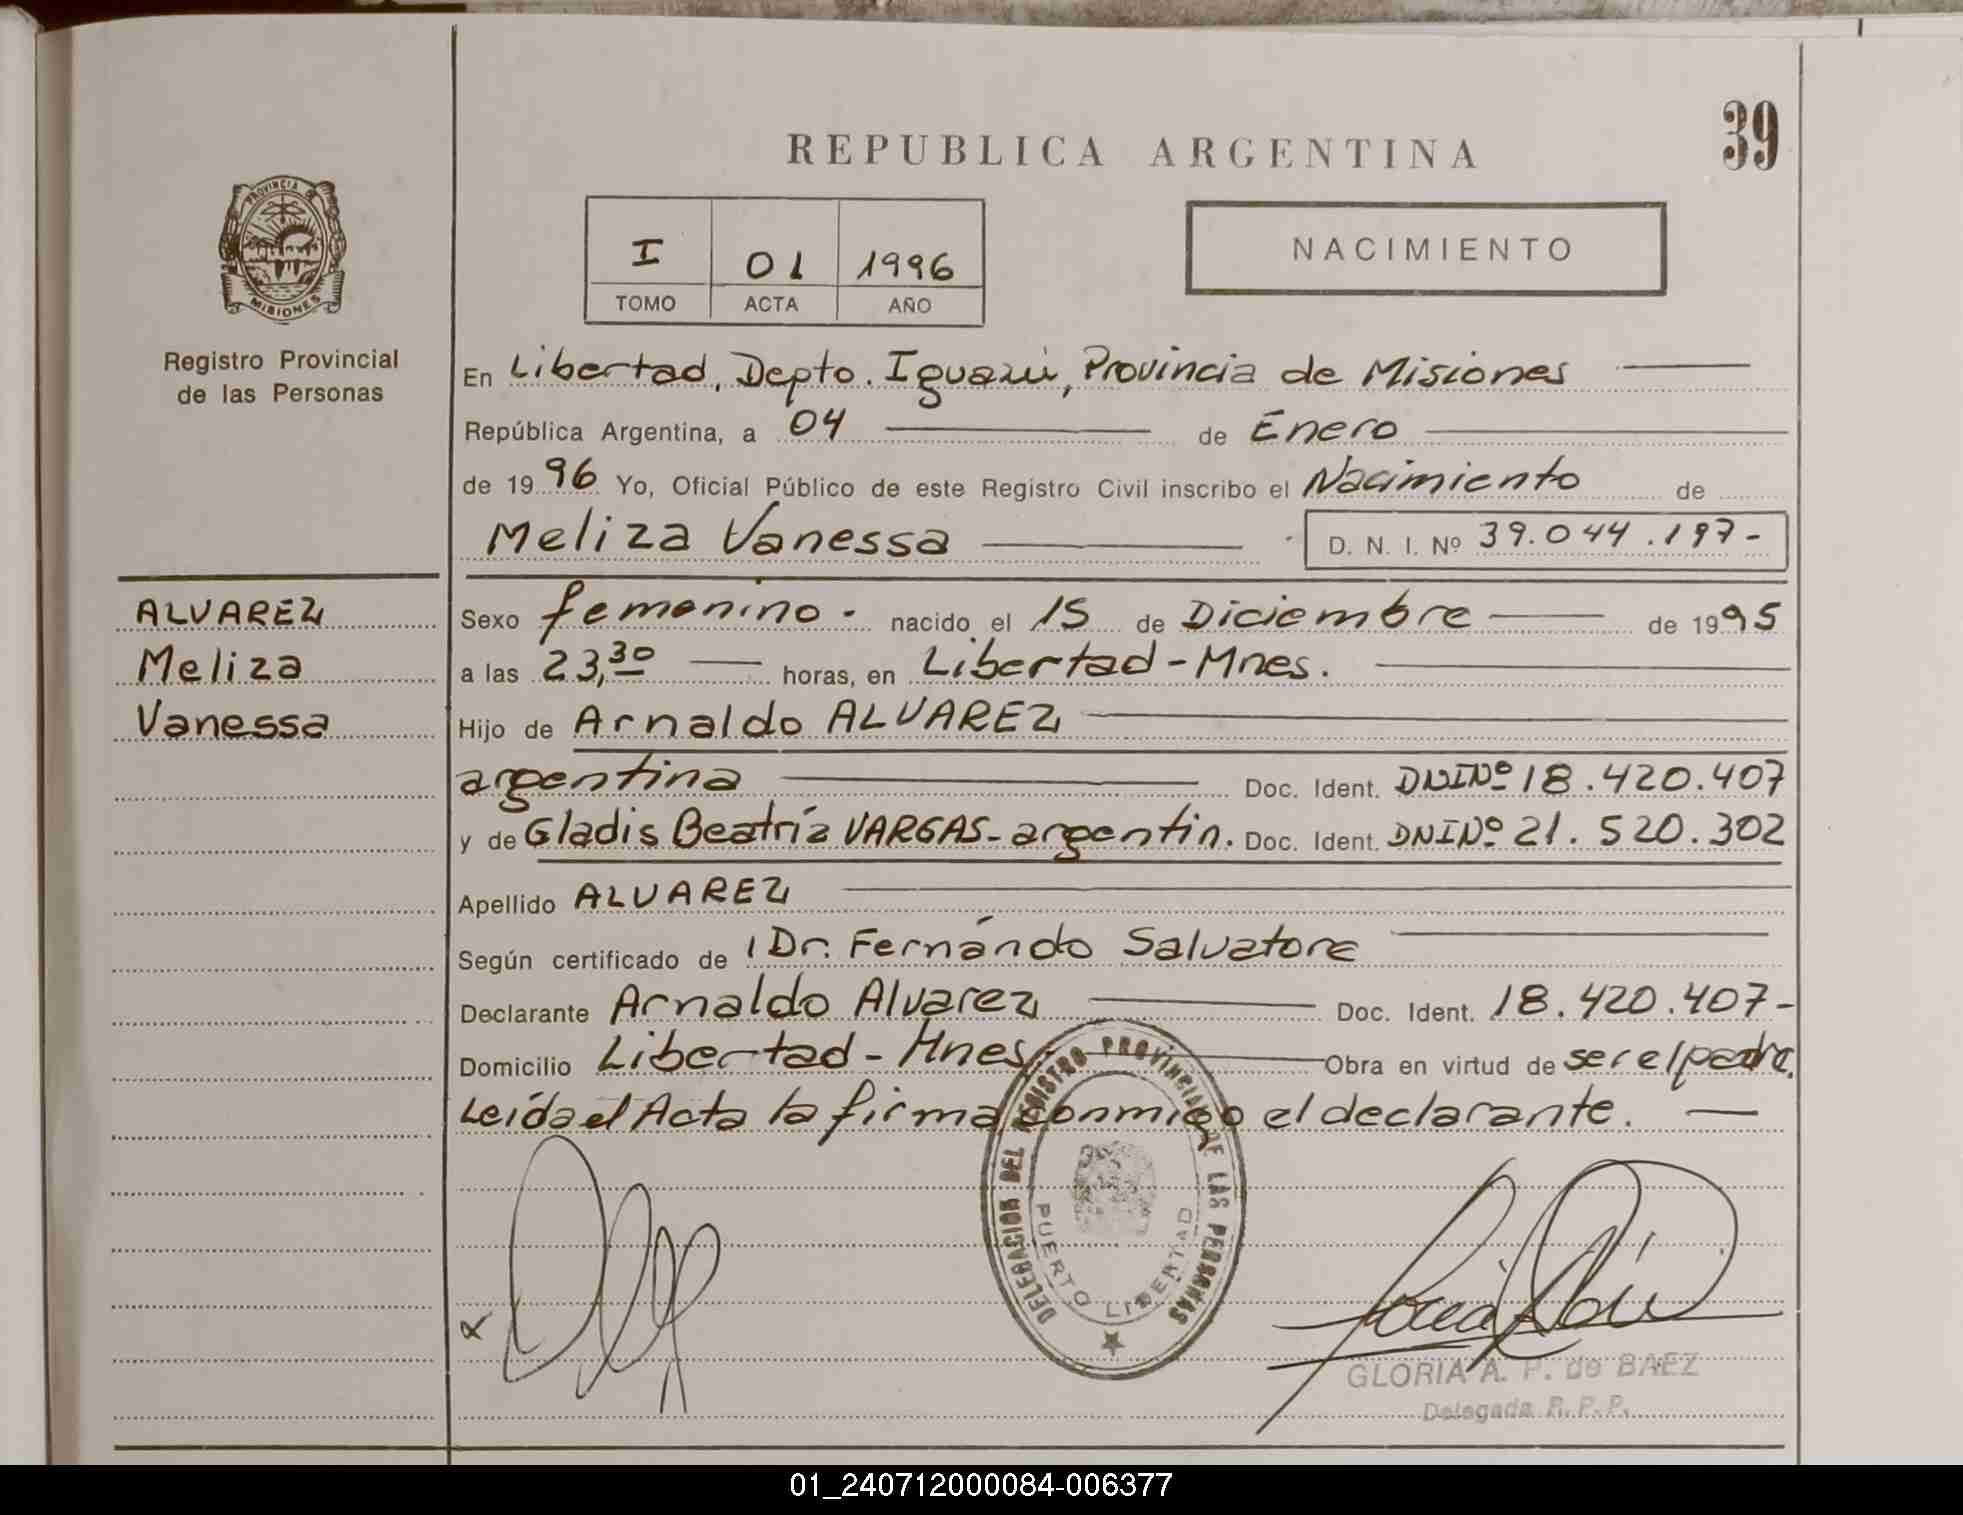 39
REPUBLICA ARGENTINA
PROVINCIA DE
MISIONES
Registro Provincial
de las Personas
I 01 1996
TOMO ACTA AÑO
NACIMIENTO
En Libertad, Depto. Iguazú, Provincia de Misiones
República Argentina, a 04 de Enero
de 1996 Yo, Oficial Público de este Registro Civil inscribo el Nacimiento de
Meliza Vanessa D. N. I. Nº 39.044.197-
ALVAREZ
Meliza
Vanessa
Sexo femenino. nacido el 15 de Diciembre de 1995
a las 23,30 horas, en Libertad-Mnes.
Hijo de Arnaldo ALVAREZ
argentina Doc. Ident. DNINº 18.420.407
y de Gladis Beatríz VARGAS-argentin. Doc. Ident. DNINº 21.520.302
Apellido ALVAREZ
Según certificado de Dr. Fernándo Salvatore
Declarante Arnaldo Alvarez Doc. Ident. 18.420.407-
Domicilio Libertad-Mnes. Obra en virtud de ser el padre.
Leída el Acta la firma conmigo el declarante.
DELEGACION DEL REGISTRO PROVINCIAL DE LAS PERSONAS
PUERTO LIBERTAD
GLORIA A. P. de BAEZ
Delegada R.P.P.
01_240712000084-006377